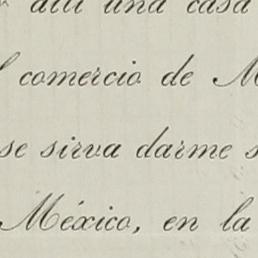 allí una casa
comercio de M
se sirva darme s
México, en la